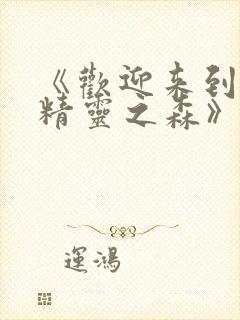 《歡迎来到
精靈之森》
運鴻